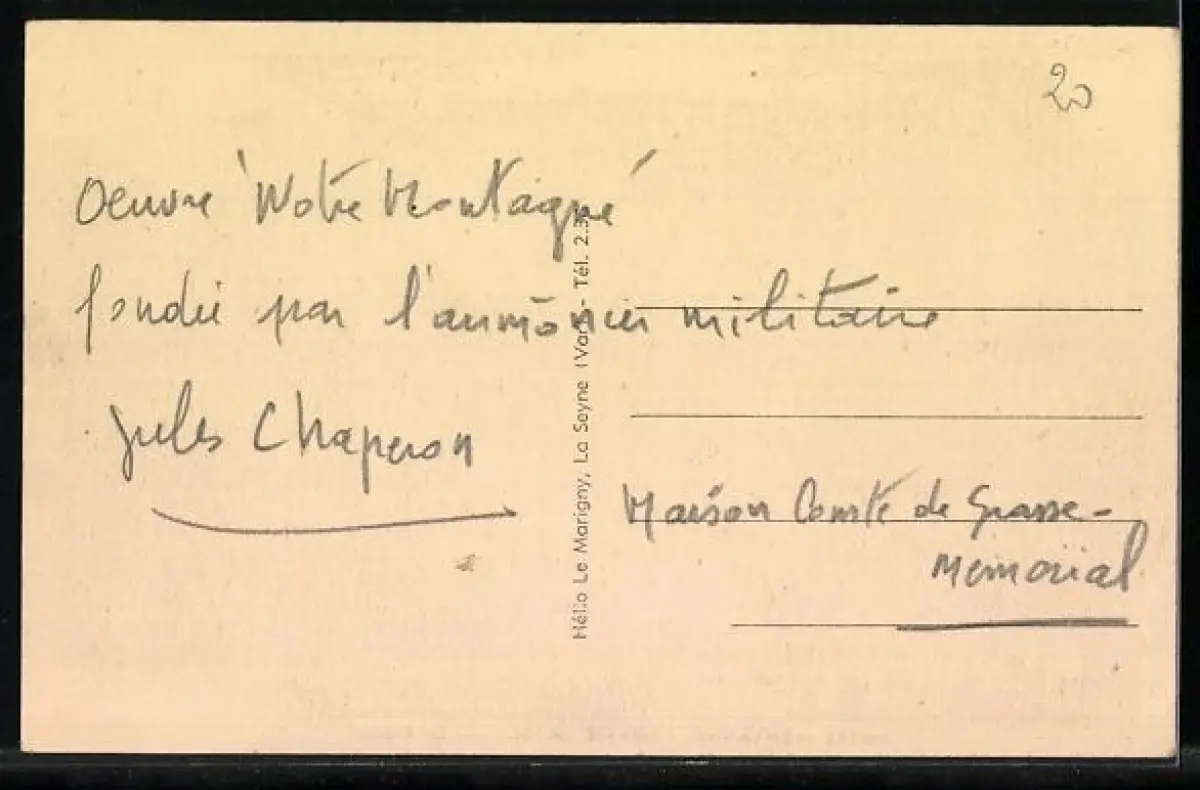 20
Oeuvre 'Notre Montagne'
fondée par l'aumônier militaire
Jules Chaperon
Hélio Le Marigny, La Seyne (Var) - Tél. 2.3
Maison Comte de Grasse-
Memorial